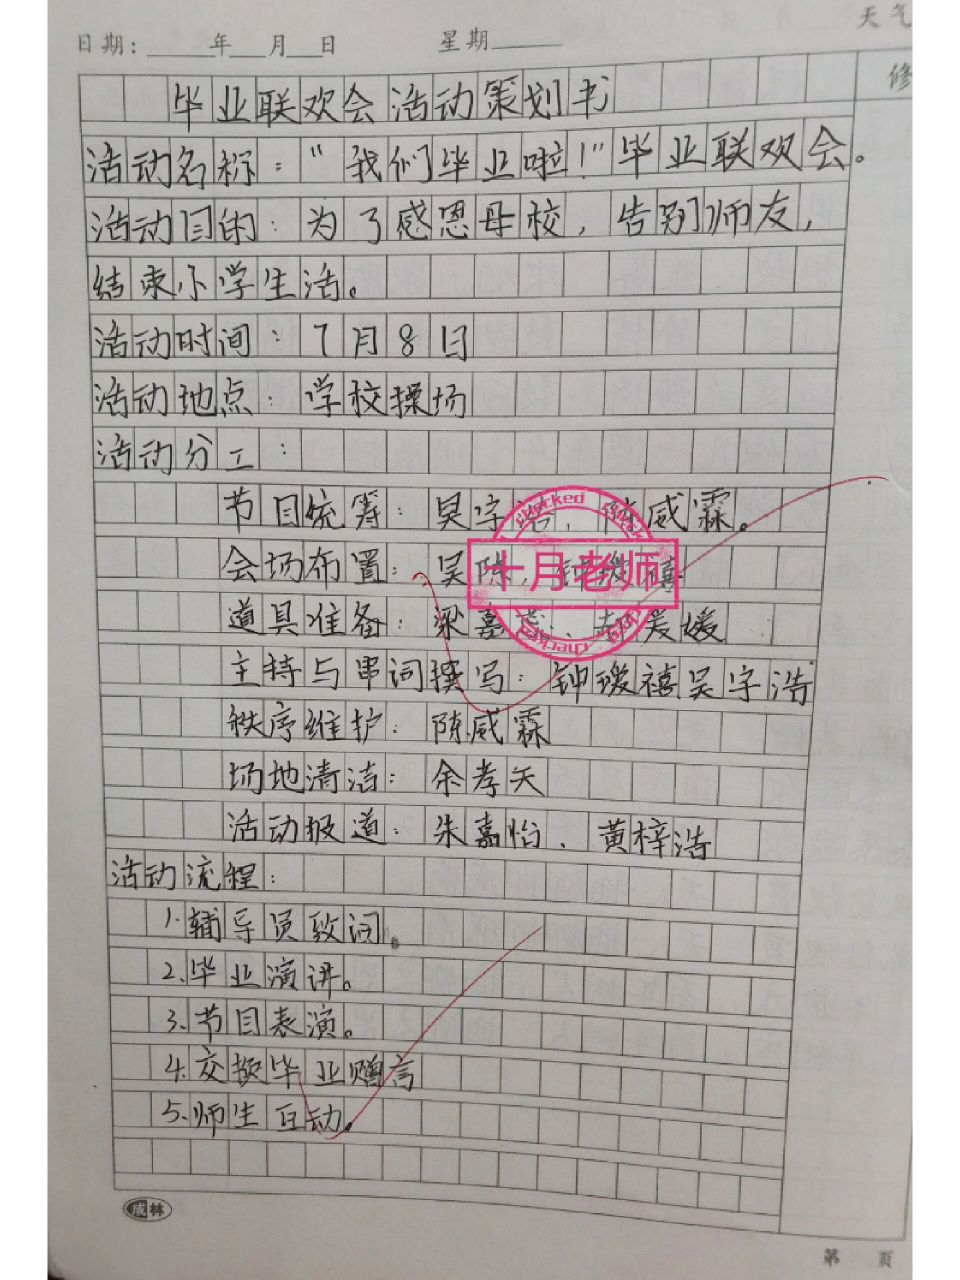 天气
日期：____年___月__日 星期_____
修
毕业联欢会活动策划书
活动名称：“我们毕业啦！”毕业联欢会。
活动目的：为了感恩母校，告别师友，
结束小学生活。
活动时间：7月8日
活动地点：学校操场
活动分工：
节目统筹：吴字浩、陈威霖。
会场布置：吴陈、钟瑷禧
道具准备：梁嘉、媛
checked
十月老师
checked
主持与串词撰写：钟瑷禧吴字浩
秩序维护：陈威霖
场地清洁：余孝天
活动报道：朱嘉怡、黄梓浩
活动流程：
1.辅导员致词。
2.毕业演讲。
3.节目表演。
4.交换毕业赠言
5.师生互动。
成林
第 页